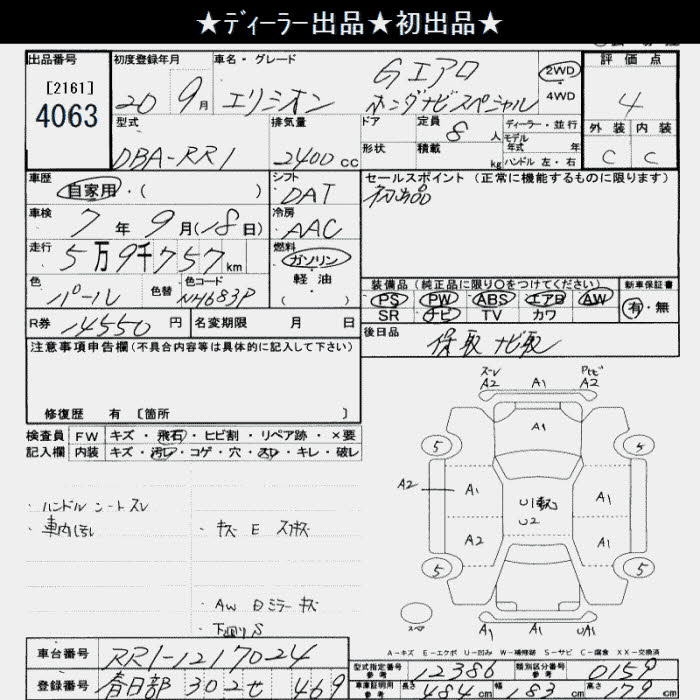 ★ディーラー出品★初出品★
出品番号 初度登録年月 車名・グレード 評価点
[2161]
4063
20 9月 エリシオン Gエアロ ホンダナビスペシャル 2WD 4WD 4
型式 排気量 ドア 定員 8人 ディーラー・並行 外装 内装
DBA-RR1 2400cc 形状 積載 kg モデル年式 年 ハンドル 左・右 C C
車歴 自家用・( ) シフト DAT セールスポイント (正常に機能するものに限ります)
初出品
車検 7年9月(18日) 冷房 AAC
走行 5万9千757km 燃料 ガソリン・軽油・( )
色 パール 色替 色コード NH683P
装備品 (純正品に限り○をつけてください) 新車保証書
PS PW ABS エアB AW 有・無
SR ナビ TV カワ
R券 14550円 名変期限 月 日 後日品 保取 ナビ取
注意事項申告欄(不具合内容等は具体的に記入して下さい)
修復歴 有 [箇所 ]
検査員 FW キズ・飛石・ヒビ割・リペア跡・×要
記入欄 内装 キズ・汚レ・コゲ・穴・スレ・キレ・破レ
・ハンドル シートスレ
・車内
・キズ E
・AW ミラー キズ
・下廻りS
A2 A1 A2
A1
5 5
A2 A1 U2 A1
A2 A1
5 5
A1 A1 UA1
A-キズ E-エクボ U-凹み W-補修跡 S-サビ C-腐食 XX-交換済
車台番号 RR1-1217024 型式指定番号 参考 12386 類別区分番号 参考 0159
登録番号 春日部 302 せ 469 車庫証明用 参考 長さ 484cm 幅 83cm 高さ 79cm